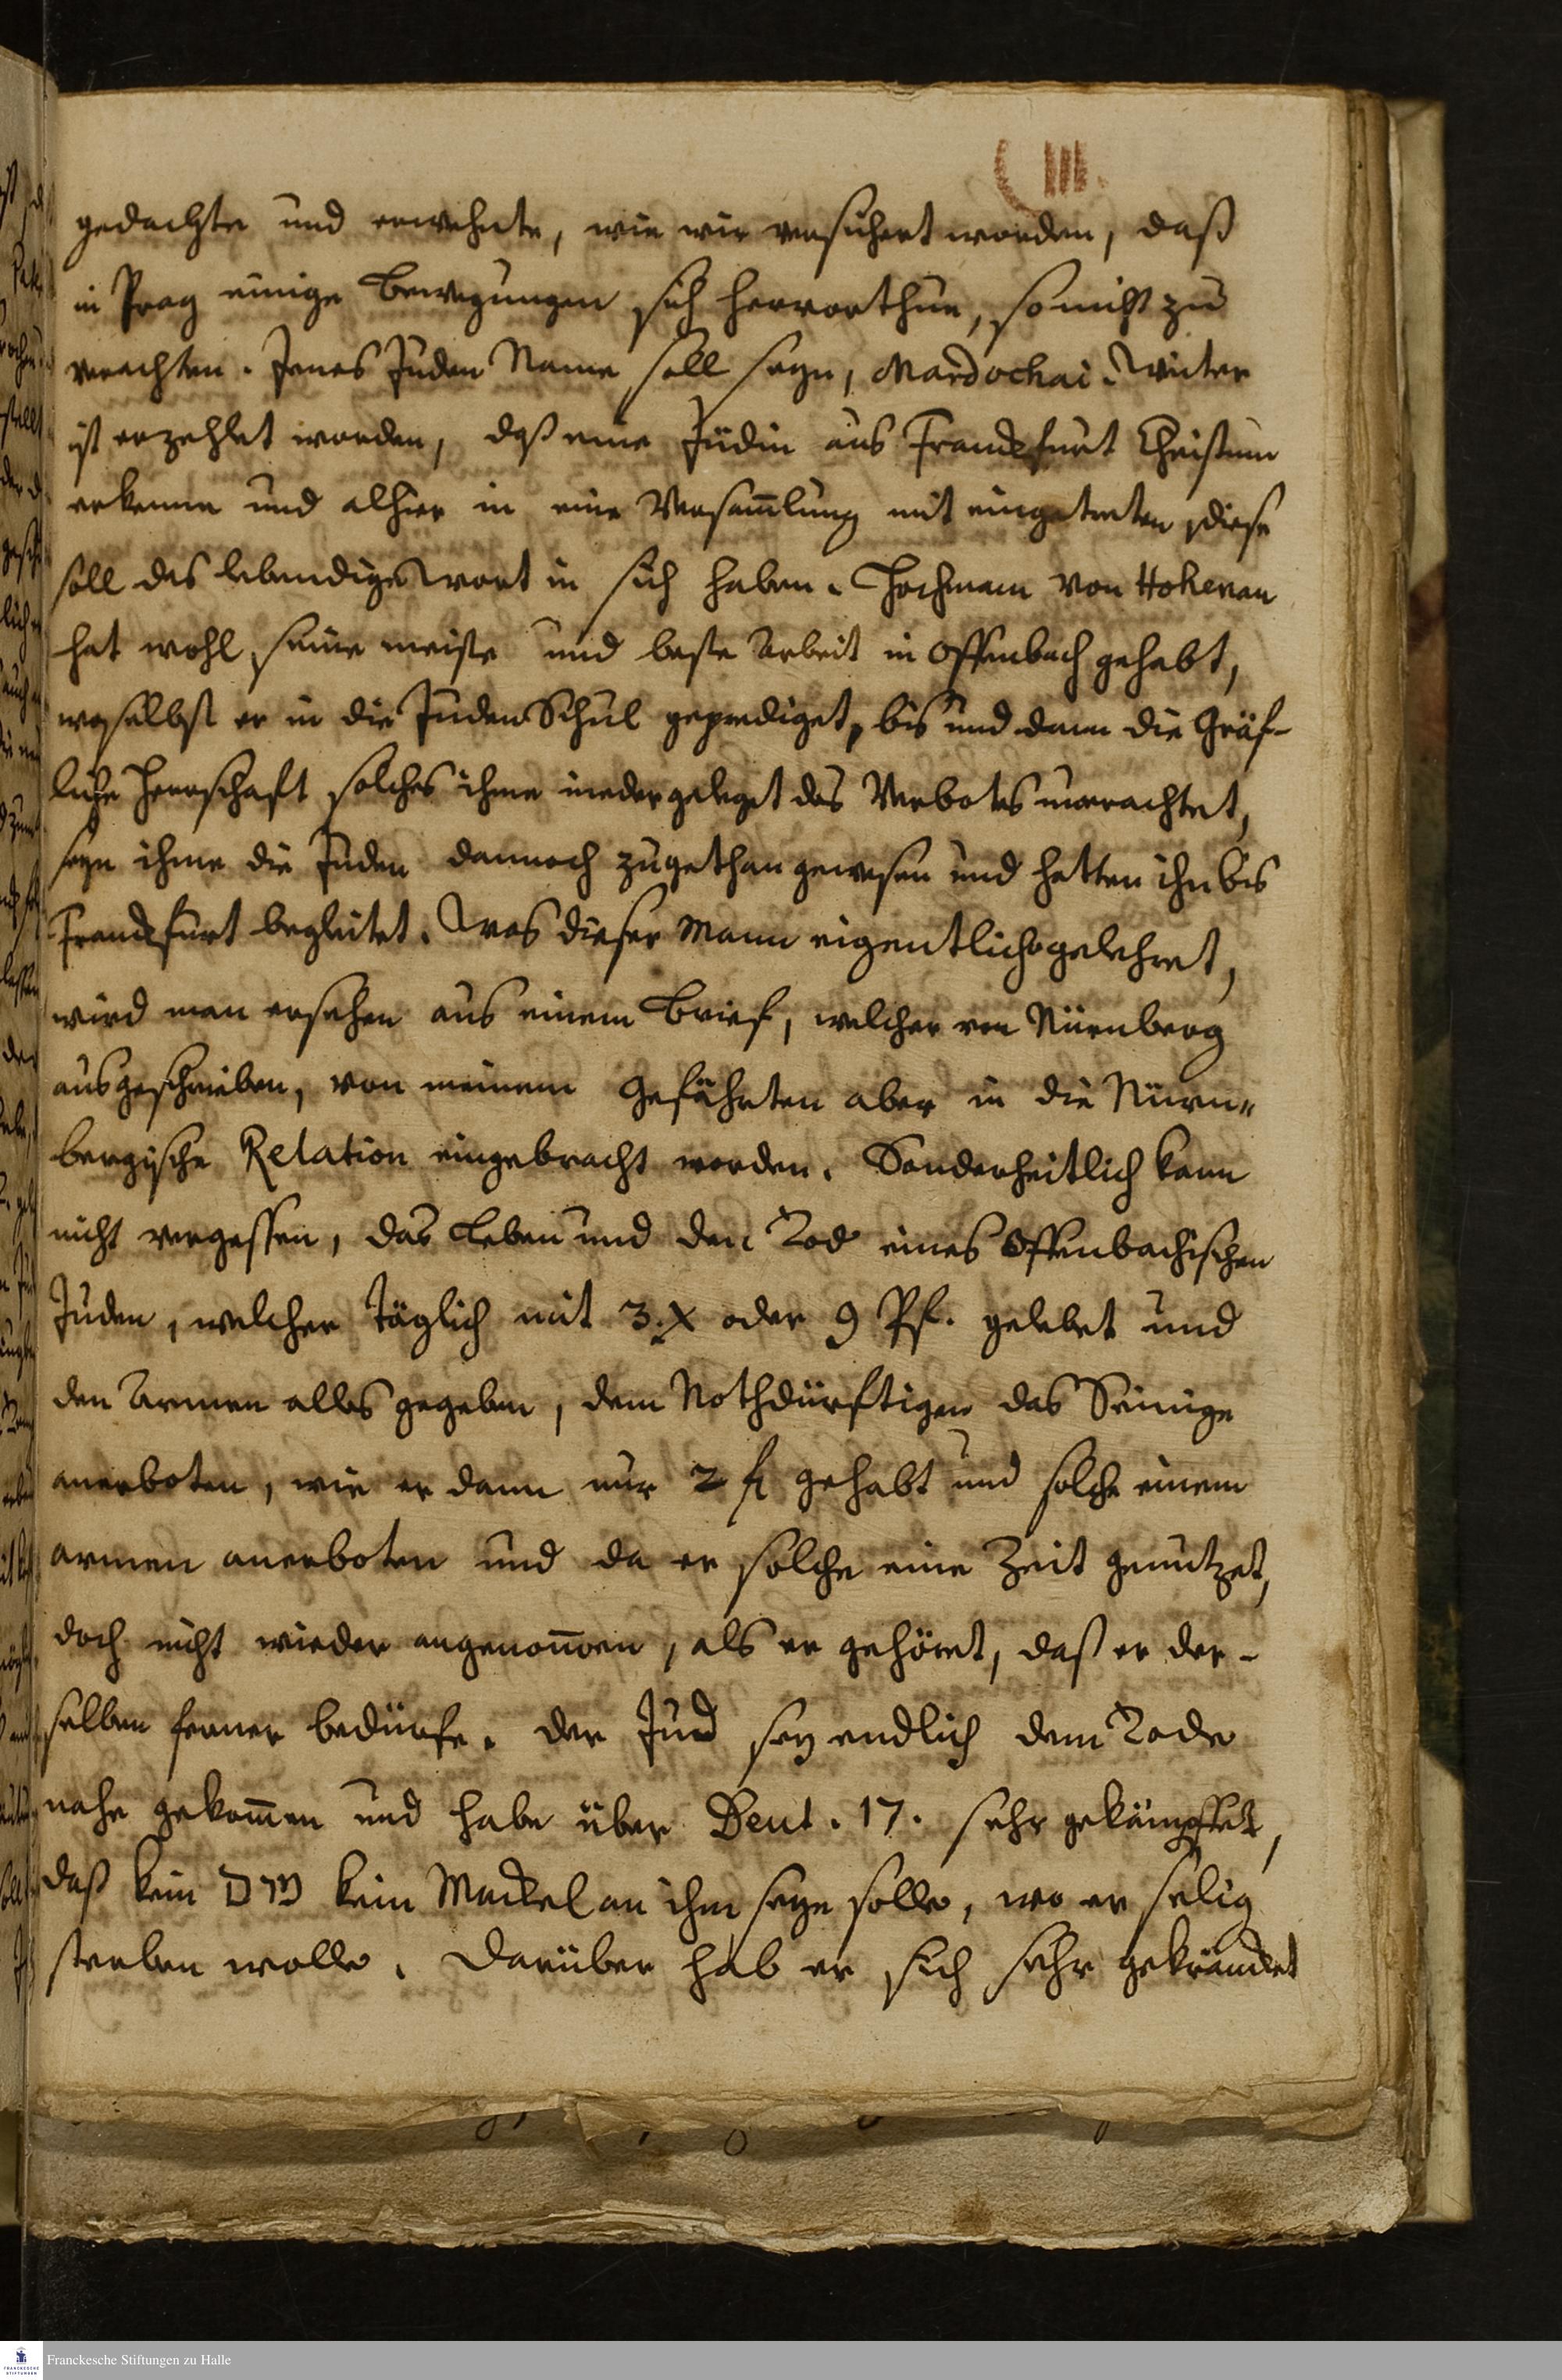 III.
gedachte und erwehnte, wie wir versichert worden, daß
in Prag einige Bewegungen sich hervorthun, so nicht zu
verachten. Jenes Juden Name soll seyn, Mardochai. Weiter
ist erzehlet worden, daß eine Jüdin aus Franckfurt Christum
erkenne und alhier in eine Versam̄lung mit eingetreten, diese
soll das lebendige Wort in sich haben. Hochmann von Hohenau
hat wohl seine meiste und beste Arbeit in Offenbach gehabt,
woselbst er in die JudenSchul geprediget, bis und dann die Gräf-
liche Herrschaft solches ihme niedergeleget des Verbots unerachtet,
seyn ihme die Juden dennoch zugethan gewesen und hatten ihn bis
Franckfurt begleitet. Was dieser Mann eigentlich gelehret,
wird man ersehen aus einem Brief, welcher von Nürnberg
ausgeschrieben, von meinem Gefährten aber in die Nürn-
bergische Relation eingebracht worden. Sonderheitlich kann
nicht vergessen, das Leben und den Tod eines Offenbachischen
Juden, welcher täglich mit 3. X oder 9 Pf. gelebet und
den Armen alles gegeben, dem Nothdürftigen das Seinige
anerboten, wie er dann nur 2 fl gehabt und solche einem
armen anerboten und da er solche eine Zeit genutzet,
doch nicht wieder angenom̄en, als er gehöret, daß er der-
selben ferner bedürfe. Der Jud sey endlich dem Tode
nahe gekom̄en und habe über Deut. 17. sehr gekämpffet,
daß kein מום kein Mackel an ihm seyn solle, wo er selig
sterben wolle. Darüber hab er sich sehr gekräncket
Franckesche Stiftungen zu Halle